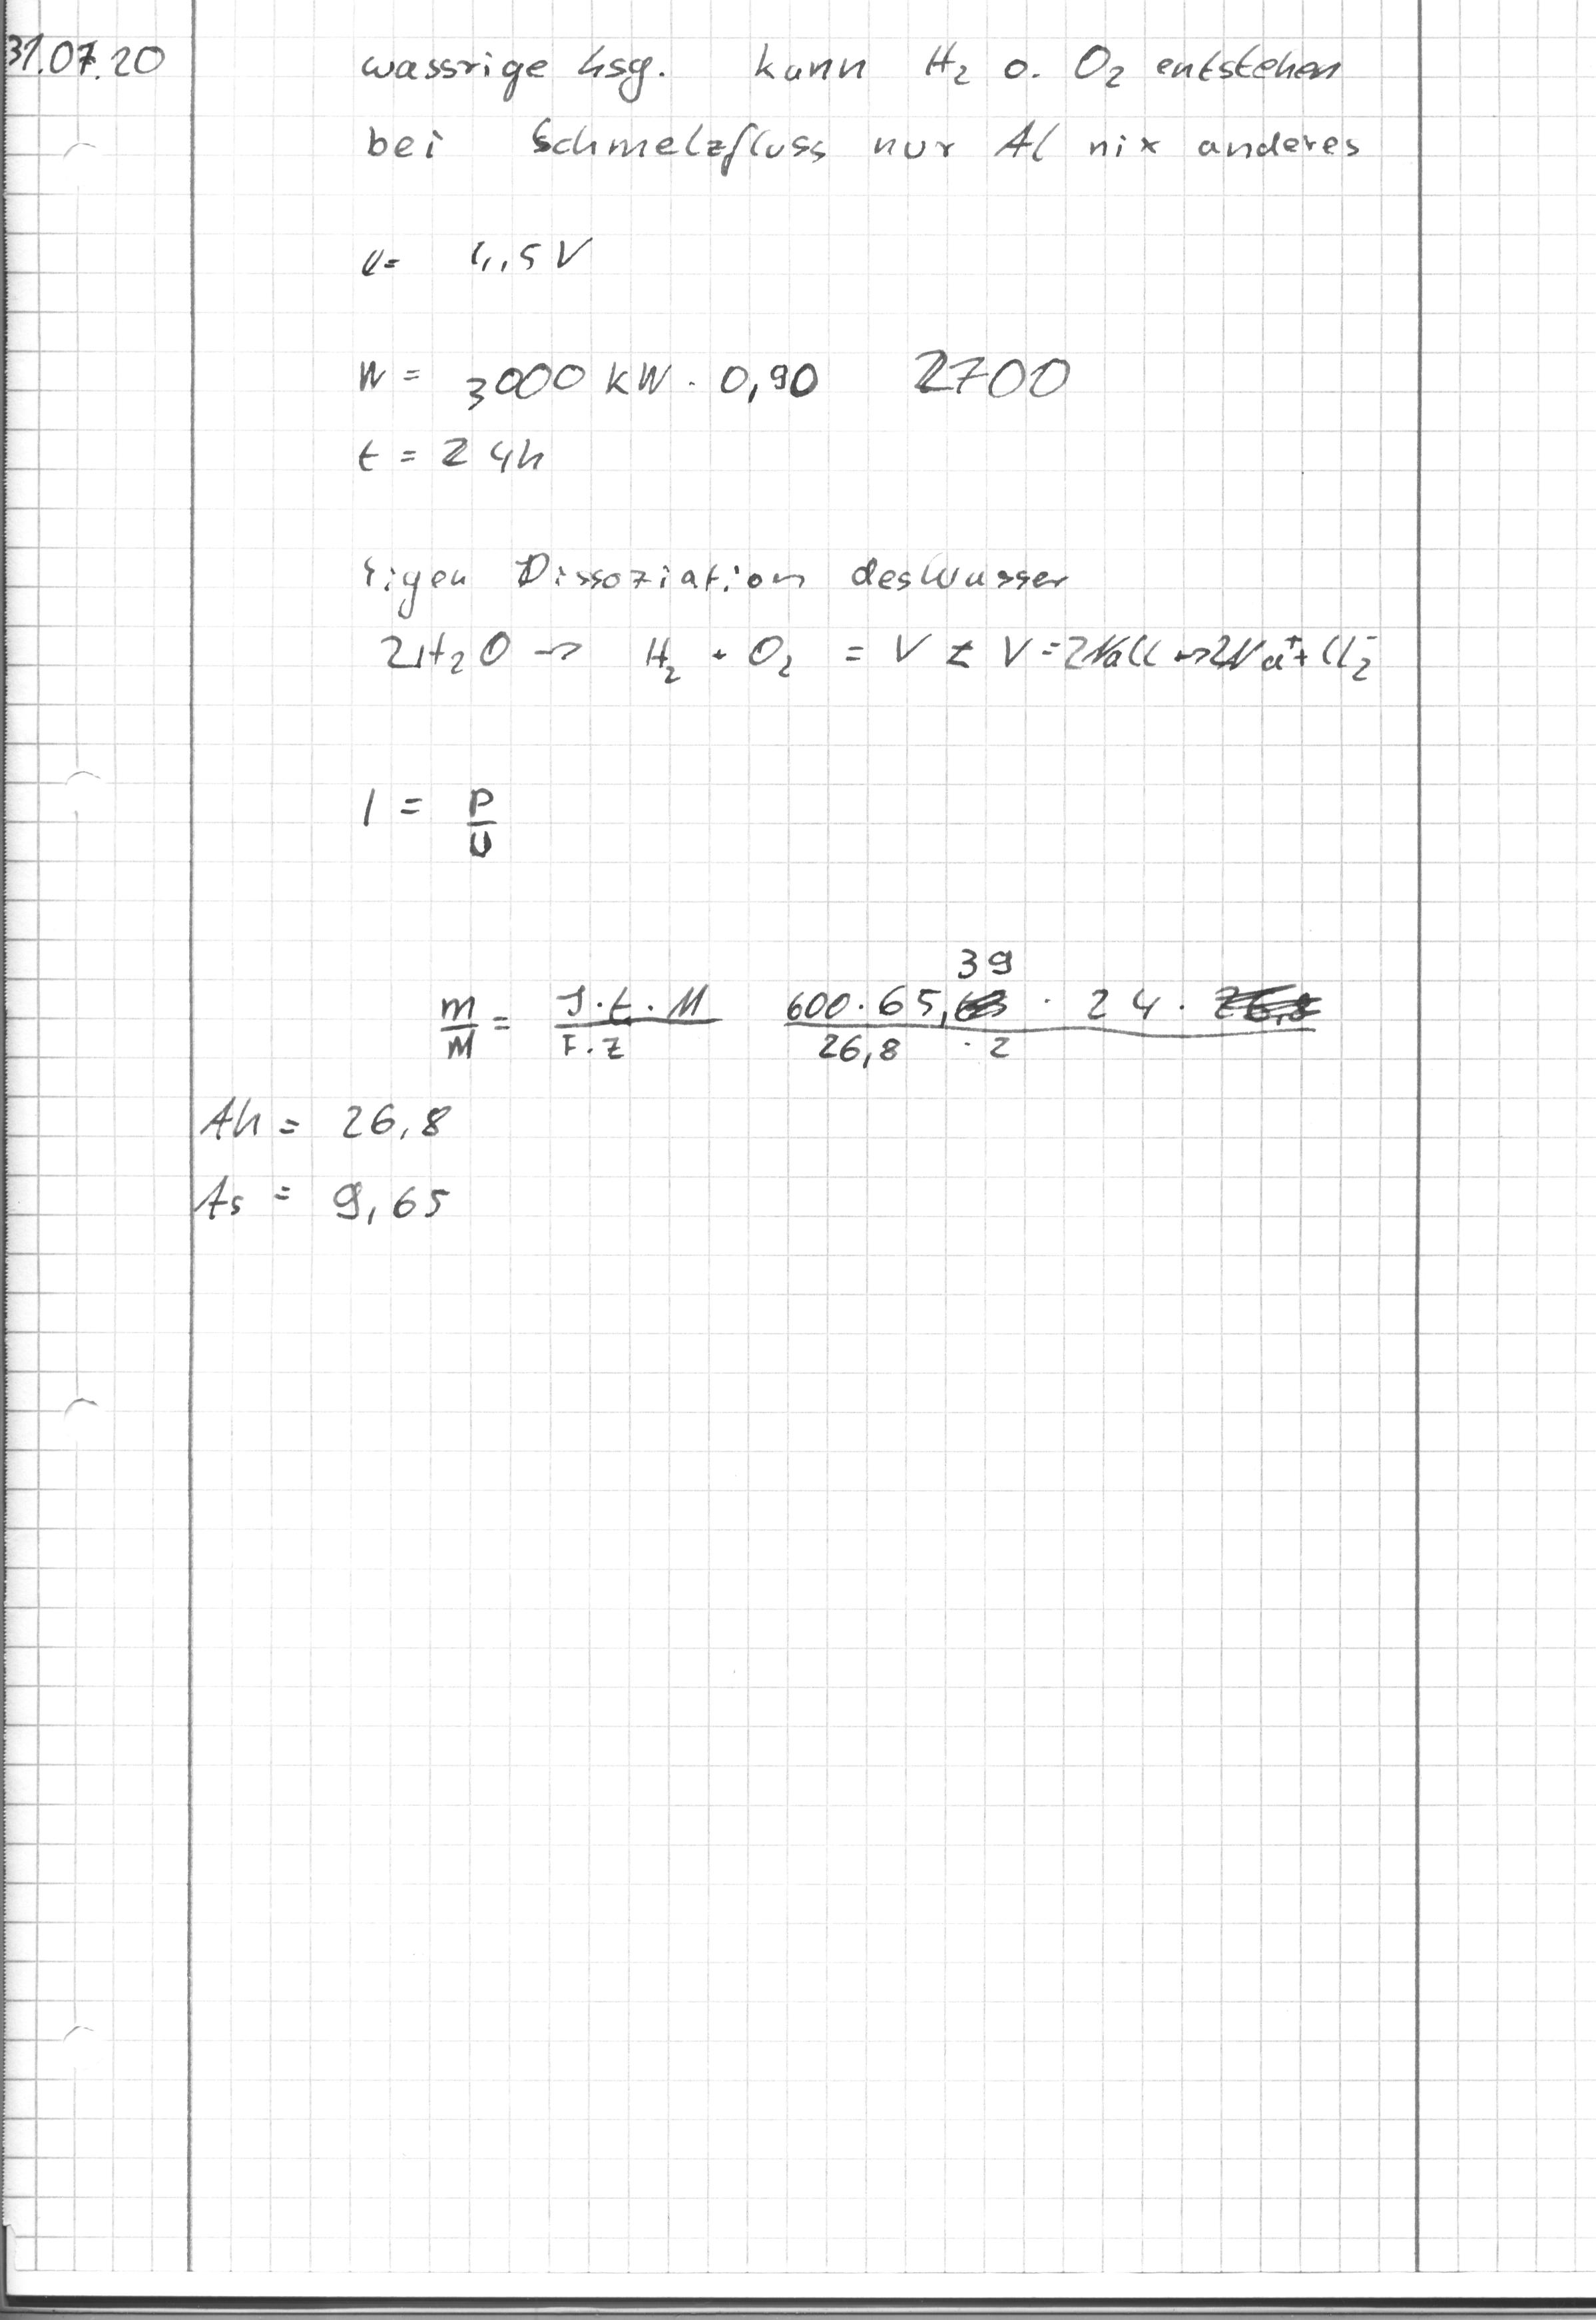 31.07.20 wassrige Lsg. kann H₂ o. O₂ entstehen
bei Schmelzfluss nur Al nix anderes
U = 4,5 V
W = 3000 kW · 0,90 2700
t = 24h
Eigen Dissoziation des Wasser
2H₂O → H₂ + O₂ = V ± V = 2NaCl → 2Na⁺ + Cl₂⁻
I = P/U
m/M = I·t·M / F·z 600·65,39 · 24 · / 26,8 · 2
Ah = 26,8
As = 9,65